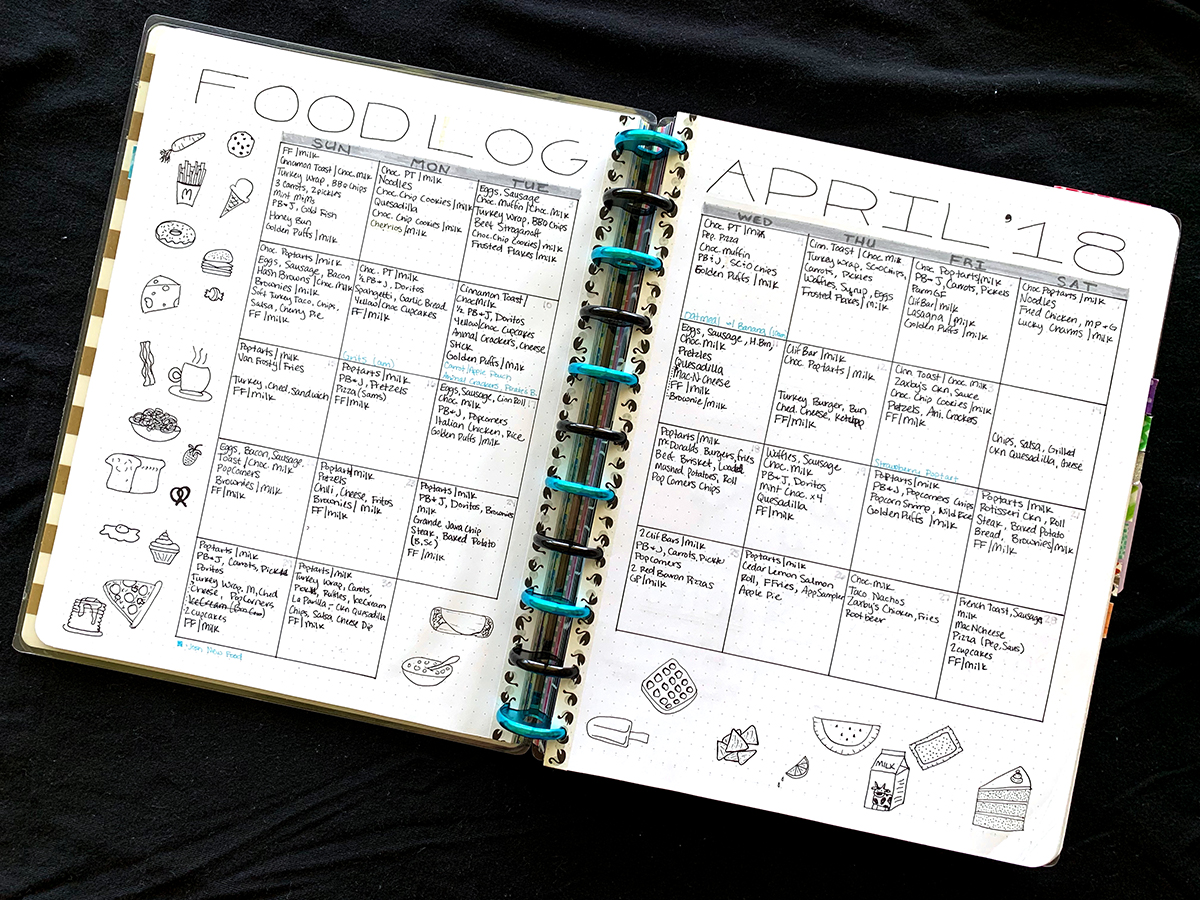 FOOD LOG
SUN
MON
TUE
FF/milk
Cinnamon Toast/Choc. Milk
Turkey Wrap, BBQ Chips
3 Carrots, 2 pickles
Mint M+Ms
PB+J, Gold Fish
Honey Bun
Golden Puffs/milk
Choc. PT/milk
Noodles
Choc. Chip Cookies/milk
Quesadilla
Choc. Chip Cookies/milk
Cherrios/milk
Eggs, Sausage
Choc. Muffin/Choc. Milk
Turkey Wrap, BBQ Chips
Beef Stroganoff
Choc. Chip Cookies/milk
Frosted Flakes/milk
Choc Poptarts/milk
Eggs, Sausage, Bacon
Hash Browns/Choc. milk
Brownies/milk
Soft Turkey Taco, Chips,
Salsa, Cherry Pie
FF/milk
Choc. PT/milk
1/2 PB+J, Doritos
Spaghetti, Garlic Bread
Yellow/Choc Cupcakes
FF/milk
10
Cinnamon Toast/
Choc Milk
1/2 PB+J, Doritos
Yellow/Choc Cupcakes
Animal Crackers, Cheese
Stick
Golden Puffs/Milk
Carrot/Apple Pouch
Animal Crackers
Poptarts/milk
Van Frosty/Fries
Turkey, Ched. Sandwich
FF/milk
Grits (am)
Poptarts/Milk
PB+J, Pretzels
Pizza (Sams)
FF/Milk
17
Eggs, Sausage, Cinn Roll
Choc Milk
PB+J, Popcorners
Italian Chicken, Rice
Golden Puffs/milk
Eggs, Bacon, Sausage
Toast/Choc Milk
PopCorners
Brownies/Milk
FF/Milk
Poptart/milk
Pretzels
Chili, Cheese, Fritos
Brownies/Milk
FF/Milk
Poptarts/Milk
PB+J, Doritos, Brownies
Milk
Grande Java Chip
Steak, Baked Potato
(B, Sc)
FF/Milk
Poptarts/milk
PB+J, Carrots, Pickle
Doritos
Turkey Wrap, M, Ched
Cheese, PopCorners
2 Cupcakes
FF/Milk
30
Poptarts/milk
Turkey Wrap, Carots,
Pickle, Ruffles, IceCream
La Parilla - Ckn Quesadilla
Chips, Salsa, Cheese Dip
FF/milk
New Food
M
APRIL '18
WED
THU
FRI
SAT
Choc. PT/milk
Pep. Pizza
Choc. Muffin
PB+J, SC+O Chips
Golden Puffs/Milk
Oatmeal w/ Banana
Cinn. Toast/Choc Milk
Turkey Wrap, Sc+Ochips,
Carrots, Pickles
Waffles, Syrup, Eggs
Frosted Flakes/milk
Choc Poptarts/milk
PB+J, Carrots, Pickels
ParmGF
Clif Bar/milk
Lasagna/milk
Golden Puffs/milk
Choc Poptarts/milk
Noodles
Fried Chicken, MP+G
Lucky Charms/milk
Eggs, Sausage, H.Bun,
Choc Milk
Pretzles
Quesadilla
MacNCheese
FF/Milk
Brownie/Milk
Clif Bar/Milk
Choc Poptarts/Milk
Turkey Burger, Bun
Ched. Cheese, Ketchpp
FF/Milk
Cinn Toast/Choc Milk
Zaxby's Ckn, Sauce
Choc Chip Cookies/milk
Pretzels, Ani. Crackers
FF/milk
Strawberry Poptart
Chips, Salsa, Grilled
Ckn Quesadilla, Cheese
Poptarts/Milk
McDonalds Burgers, fries
Beef Brisket, Loaded
Mashed Potatoes, Roll
Pop Corners Chips
Waffles, Sausage
Choc. Milk
PB+J, Doritos
Mint Choc. x4
Quesadilla
FF/milk
Poptarts/Milk
PB+J, Popcorners Chips
Popcorn Shrimp, Wild Rice
Golden Puffs/Milk
Poptarts/milk
Rotisseri Ckn, Roll
Steak, Baked Potato
Bread, Brownies/Milk
FF/Milk
2 Clif Bars/Milk
PB+J, Carrots, Pickle
Popcorners
2 Red Baron Pizzas
GP/milk
Poptarts/Milk
Cedar Lemon Salmon
Roll, FFries, App Sampler
Apple Pie
Choc-Milk
Taco Nachos
Zaxby's Chicken, Fries
Rootbeer
French Toast, Sausage
Milk
MacNCheese
Pizza (Pep, Saus)
2 cupcakes
FF/milk
MILK